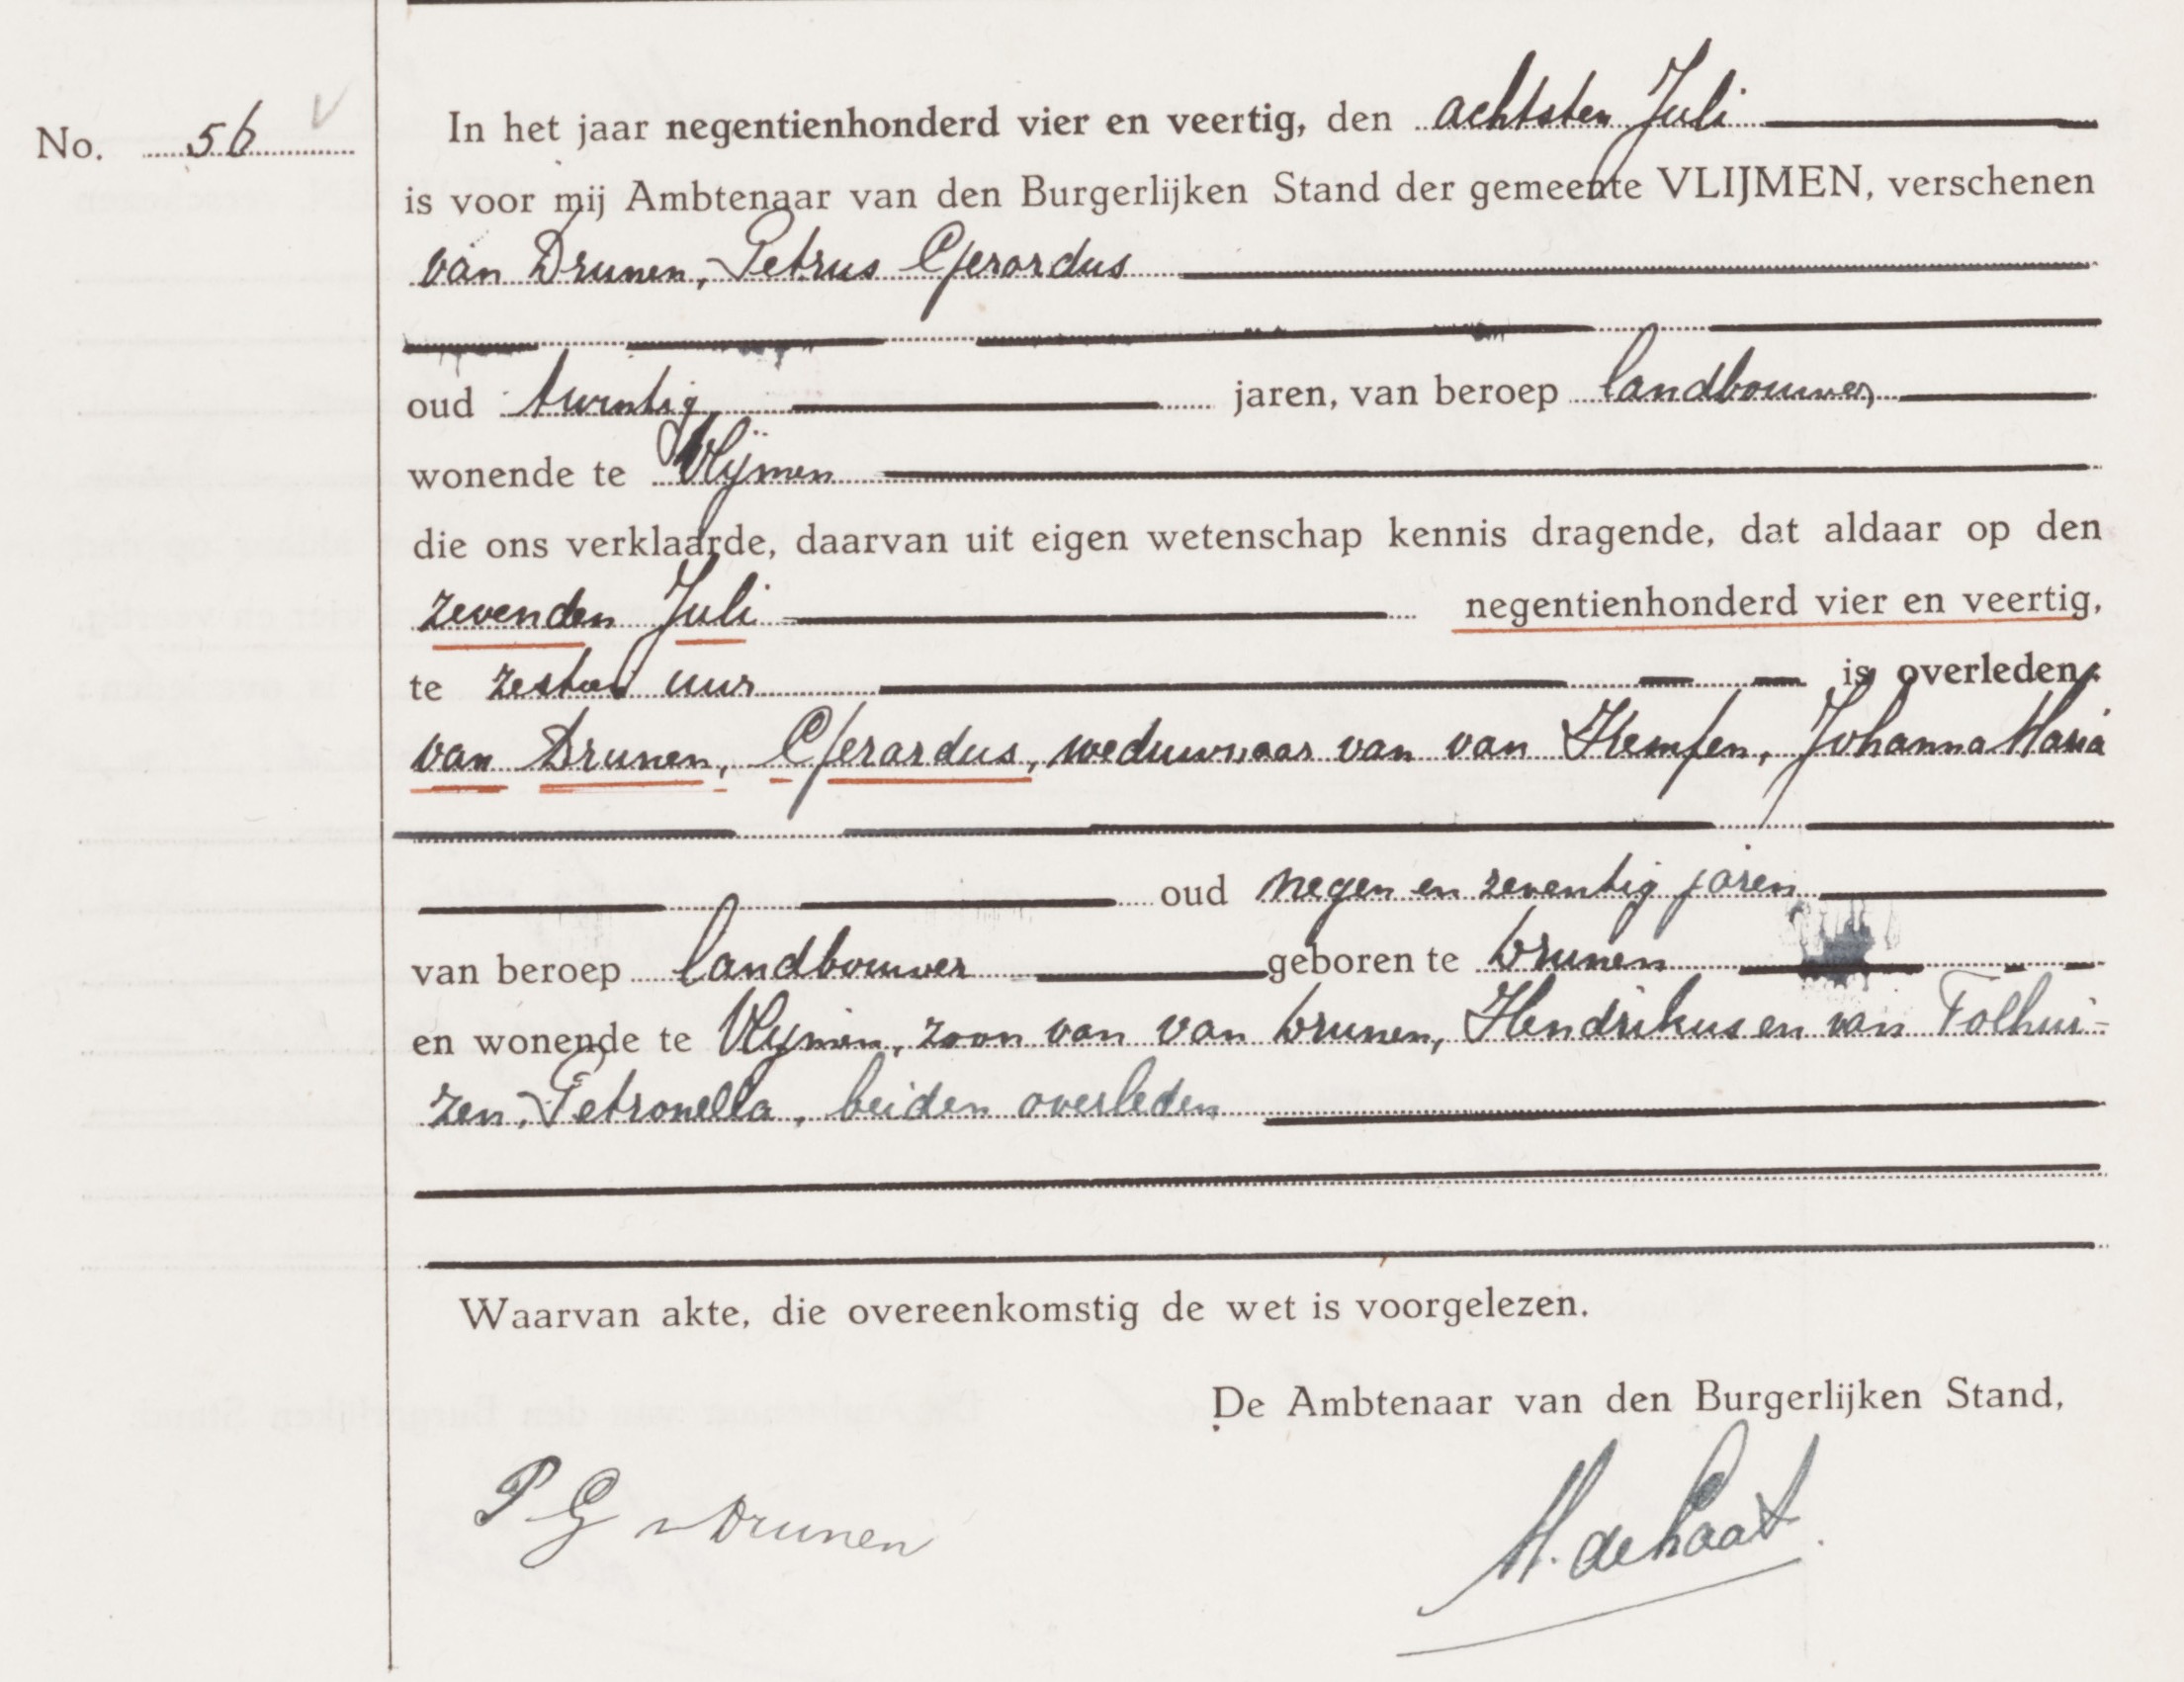 No. 56 V
In het jaar negentienhonderd vier en veertig, den achtsten Juli
is voor mij Ambtenaar van den Burgerlijken Stand der gemeente VLIJMEN, verschenen
van Drunen, Petrus Gerardus
oud twintig jaren, van beroep landbouwer,
wonende te Vlijmen
die ons verklaarde, daarvan uit eigen wetenschap kennis dragende, dat aldaar op den
zevenden Juli negentienhonderd vier en veertig,
te zestien uur is overleden:
van Drunen, Gerardus, weduwnaar van van Hemfen, Johanna Maria
oud negen en zeventig jaren
van beroep landbouwer geboren te Drunen
en wonende te Vlijmen, zoon van van Drunen, Hendrikus en van Folhui-
zen, Petronella, beiden overleden
Waarvan akte, die overeenkomstig de wet is voorgelezen.
De Ambtenaar van den Burgerlijken Stand,
P G v Drunen
H. de Laat.